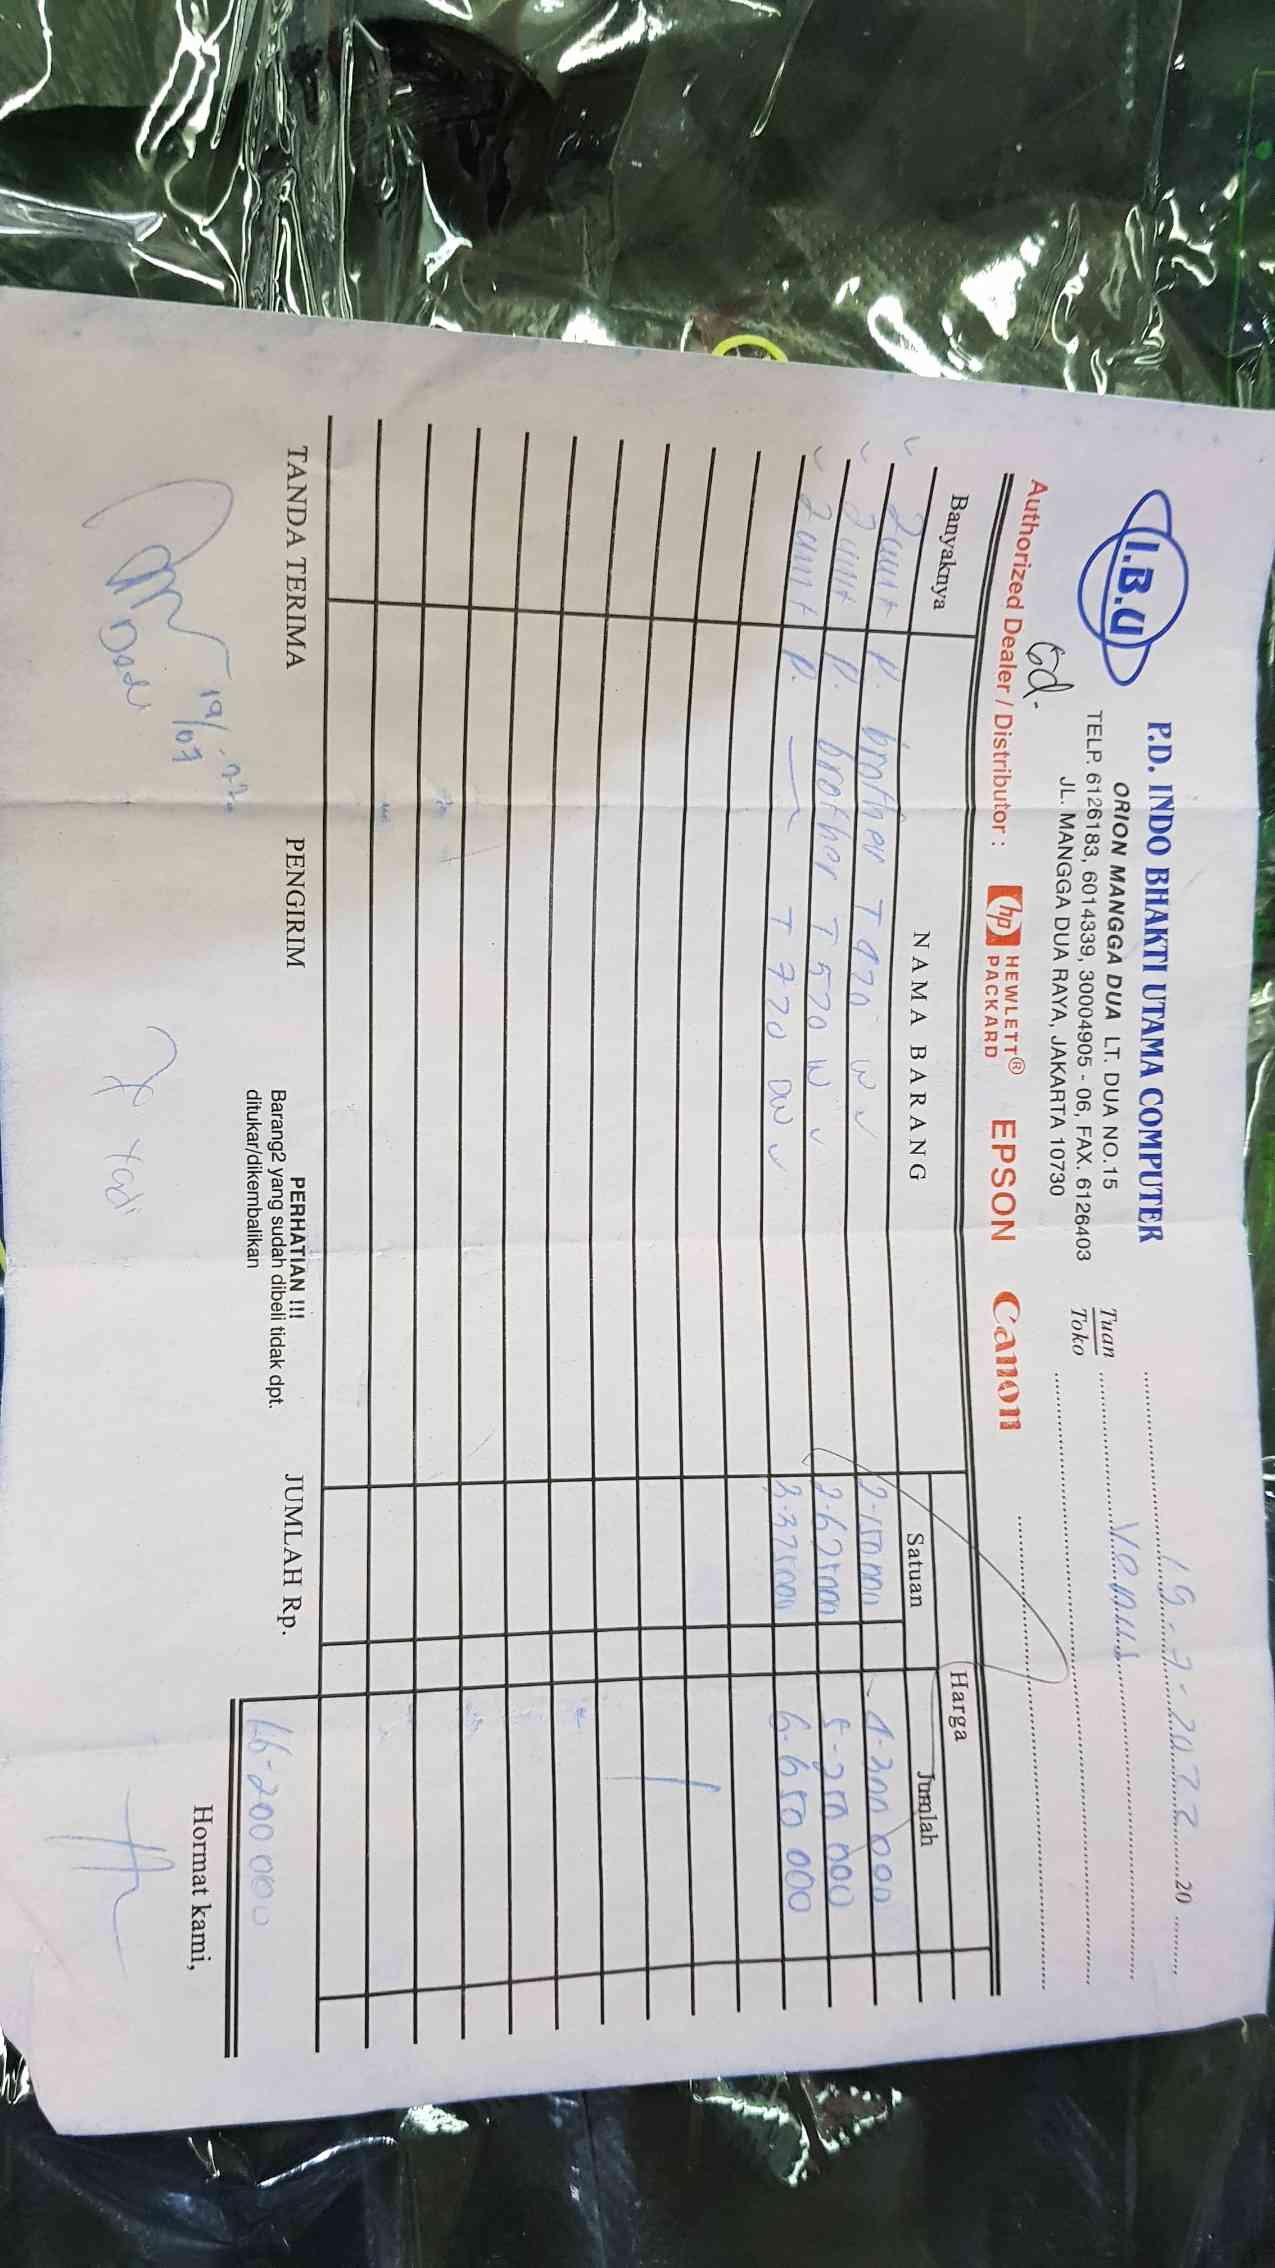 I.B.U
P.D. INDO BHAKTI UTAMA COMPUTER
ORION MANGGA DUA LT. DUA NO.15
TELP. 6126183, 6014339, 30004905 - 06, FAX. 6126403
JL. MANGGA DUA RAYA, JAKARTA 10730
19-7-2022 20
Tuan Venus
Toko
Gd-
Authorized Dealer / Distributor : hp HEWLETT® PACKARD EPSON Canon
Banyaknya NAMA BARANG Harga
Satuan Jumlah
2 unit P. brother T 420 W 2.150.000 4.300.000
2 unit P. brother T 520 W 2.625.000 5.250.000
2 unit P. T 720 DW 3.325.000 6.650.000
TANDA TERIMA PENGIRIM JUMLAH Rp. 16.200.000
PERHATIAN !!!
Barang2 yang sudah dibeli tidak dpt.
ditukar/dikembalikan
Hormat kami,
19/07-22
Dedi
Yadi